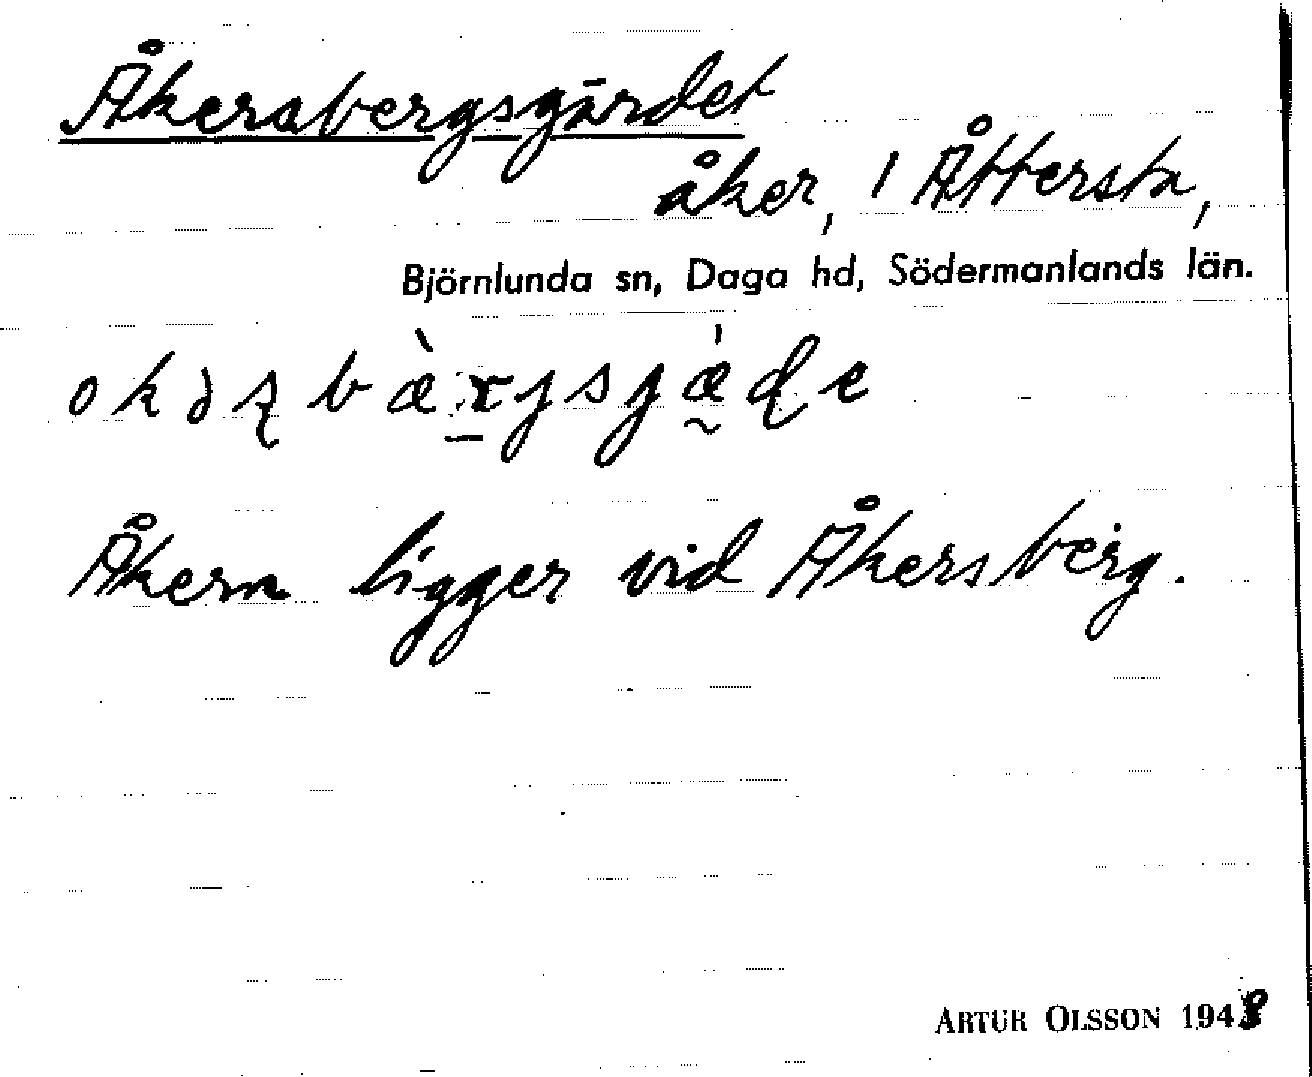 Åkersbergsgärdet
åker, i Åttersta,
Björnlunda sn, Daga hd, Södermanlands län.
Åkern ligger vid Åkersberg.
ARTUR OLSSON 1948